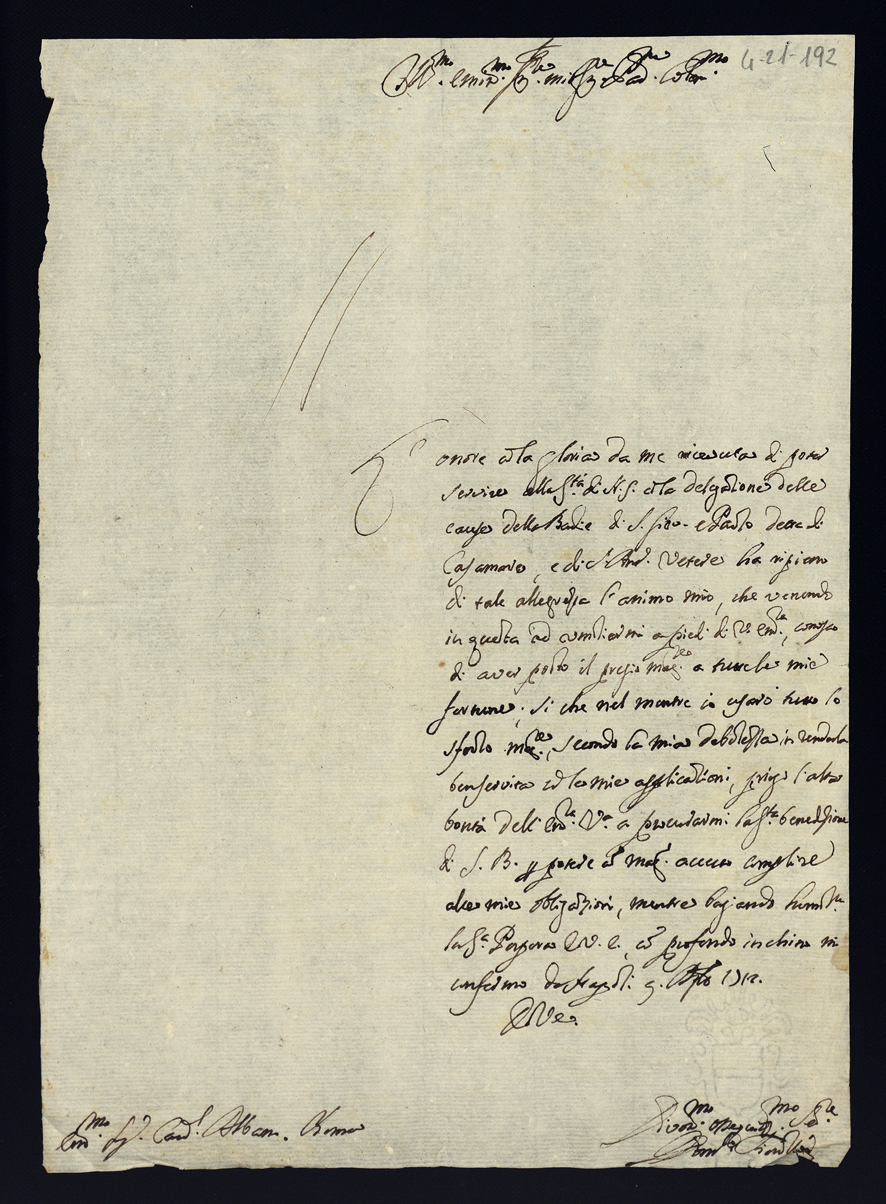 Ill.mo Emin.mo Sig.re mio Sig.re e Pad. Colen.mo
4-21-192
L'onore e la gloria da me ricevuta di poter
servire alla S.tà di N.S. e la delegazione delle
cause delle Badie di S. Gio. e Paolo detta di
Casamare, e di S. And. Vetere ha ripieno
di tale allegrezza l'animo mio, che venendo
in questa ad umiliarmi a piedi di V. Em.za, conosco
di aver posto il pregio mag.re a tutte le mie
fortune; si che nel mentre io userò tutto lo
sforzo mag.re, secondo la mia debolezza in renderla
benservita colle mie applicationi, priego l'alta
bontà dell'Em.za V.a a procurarmi la S.ta benedizione
di S. B. per potere con mag. accerto complire
alle mie obligazioni, mentre baciando humil.te
la S.a Porpora di V. E., con profondo inchino mi
confermo da Napoli 9 1712.
D.V.E.
Em.mo Sig. Card.l Albani. Roma
Divot.mo Osseq.mo Se.re